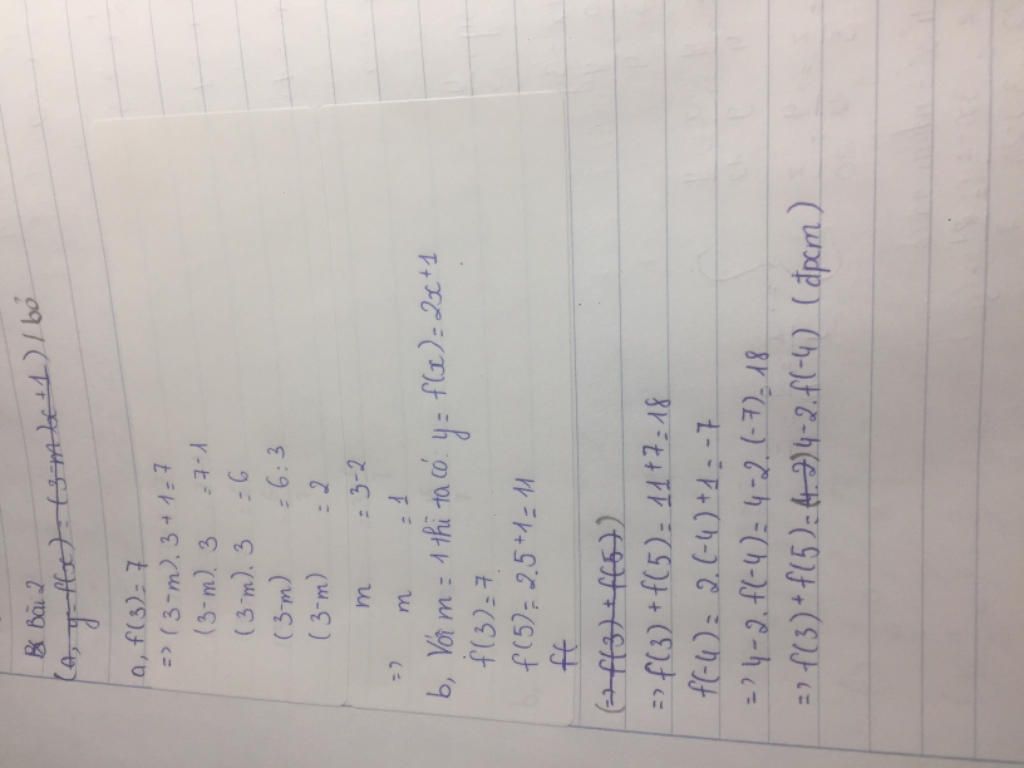 Bài 2
(a, y = f(x) = (3-m)x + 1) | bỏ
a, f(3) = 7
=> (3-m).3 + 1 = 7
(3-m).3 = 7-1
(3-m).3 = 6
(3-m) = 6:3
(3-m) = 2
m = 3-2
=> m = 1
b, Với m = 1 thì ta có: y = f(x) = 2x+1
f(3) = 7
f(5) = 2.5+1 = 11
f(
(=> f(3) + f(5))
=> f(3) + f(5) = 11+7 = 18
f(-4) = 2.(-4)+1 = -7
=> 4-2.f(-4) = 4-2.(-7) = 18
=> f(3) + f(5) = (4-2) 4-2.f(-4) (đpcm)